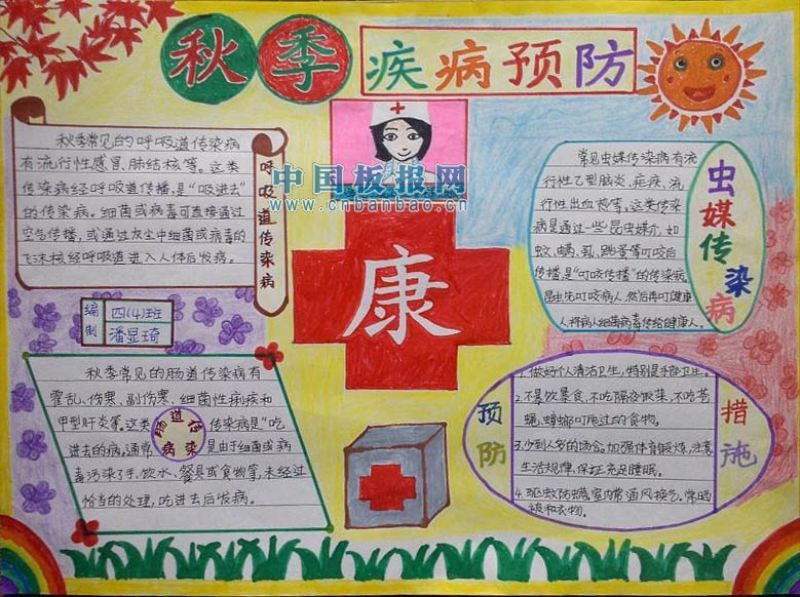 秋季疾病预防
中国板报网
www.cnbanbao.cn
秋季常见的呼吸道传染病
有流行性感冒、肺结核等。这类
传染病经呼吸道传播，是“吸进去”
的传染病。细菌或病毒可直接通过
空气传播，或通过灰尘中细菌或病毒的
飞沫核经呼吸道进入人体后发病。
呼吸道传染病
编制
四(4)班
潘显琦
常见虫媒传染病有流
行性乙型脑炎、疟疾、流
行性出血热等。这类传染
病是通过一些昆虫媒介，如
蚊、螨、虱、跳蚤等叮咬后
传播，是“叮咬传播”的传染病，
昆虫先叮咬病人，然后再叮健康
人，将病人细菌病毒传给健康人。
虫媒传染病
康
秋季常见的肠道传染病有
霍乱、伤寒、副伤寒、细菌性痢疾和
甲型肝炎等。这类传染病是“吃
进去的病。通常是由于细菌或病
毒污染了手、饮水、餐具或食物等，未经过
恰当的处理，吃进去后发病。
肠道传染病
预防
1、做好个人清洁卫生，特别是手部卫生。
2、不暴饮暴食，不吃隔夜饭菜，不吃苍
蝇、蟑螂叮爬过的食物。
3、少到人多的场合。加强体育锻炼，注意
生活规律，保证充足睡眠。
4、驱蚊防虫，室内常通风换气，常晒
被和衣物。
措施